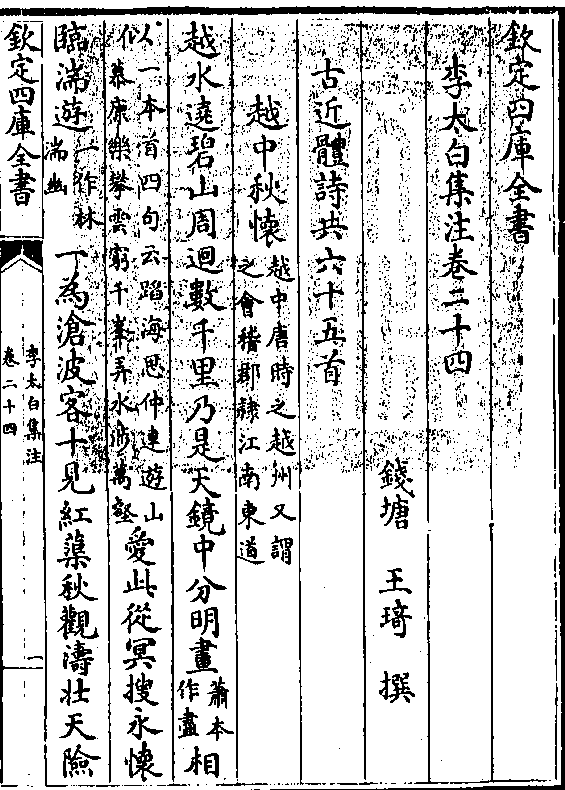 欽定四庫全書
李太白集注卷二十四
錢塘 王琦 撰
古近體詩共六十五首
越中秋懷 越中唐時之越州又謂之會稽郡隷江南東道
越水遶碧山周迴數千里乃是天鏡中分明畫 蕭本作盡 相
似 一本首四句云蹈海思仲連遊山慕康樂攀雲窮千峯弄水涉萬壑 愛此從冥搜永懷
臨湍遊 一作林湍幽 一為滄波客十見紅蕖秋觀濤壯天險
欽定四庫全書
李太白集注
卷二十四
一